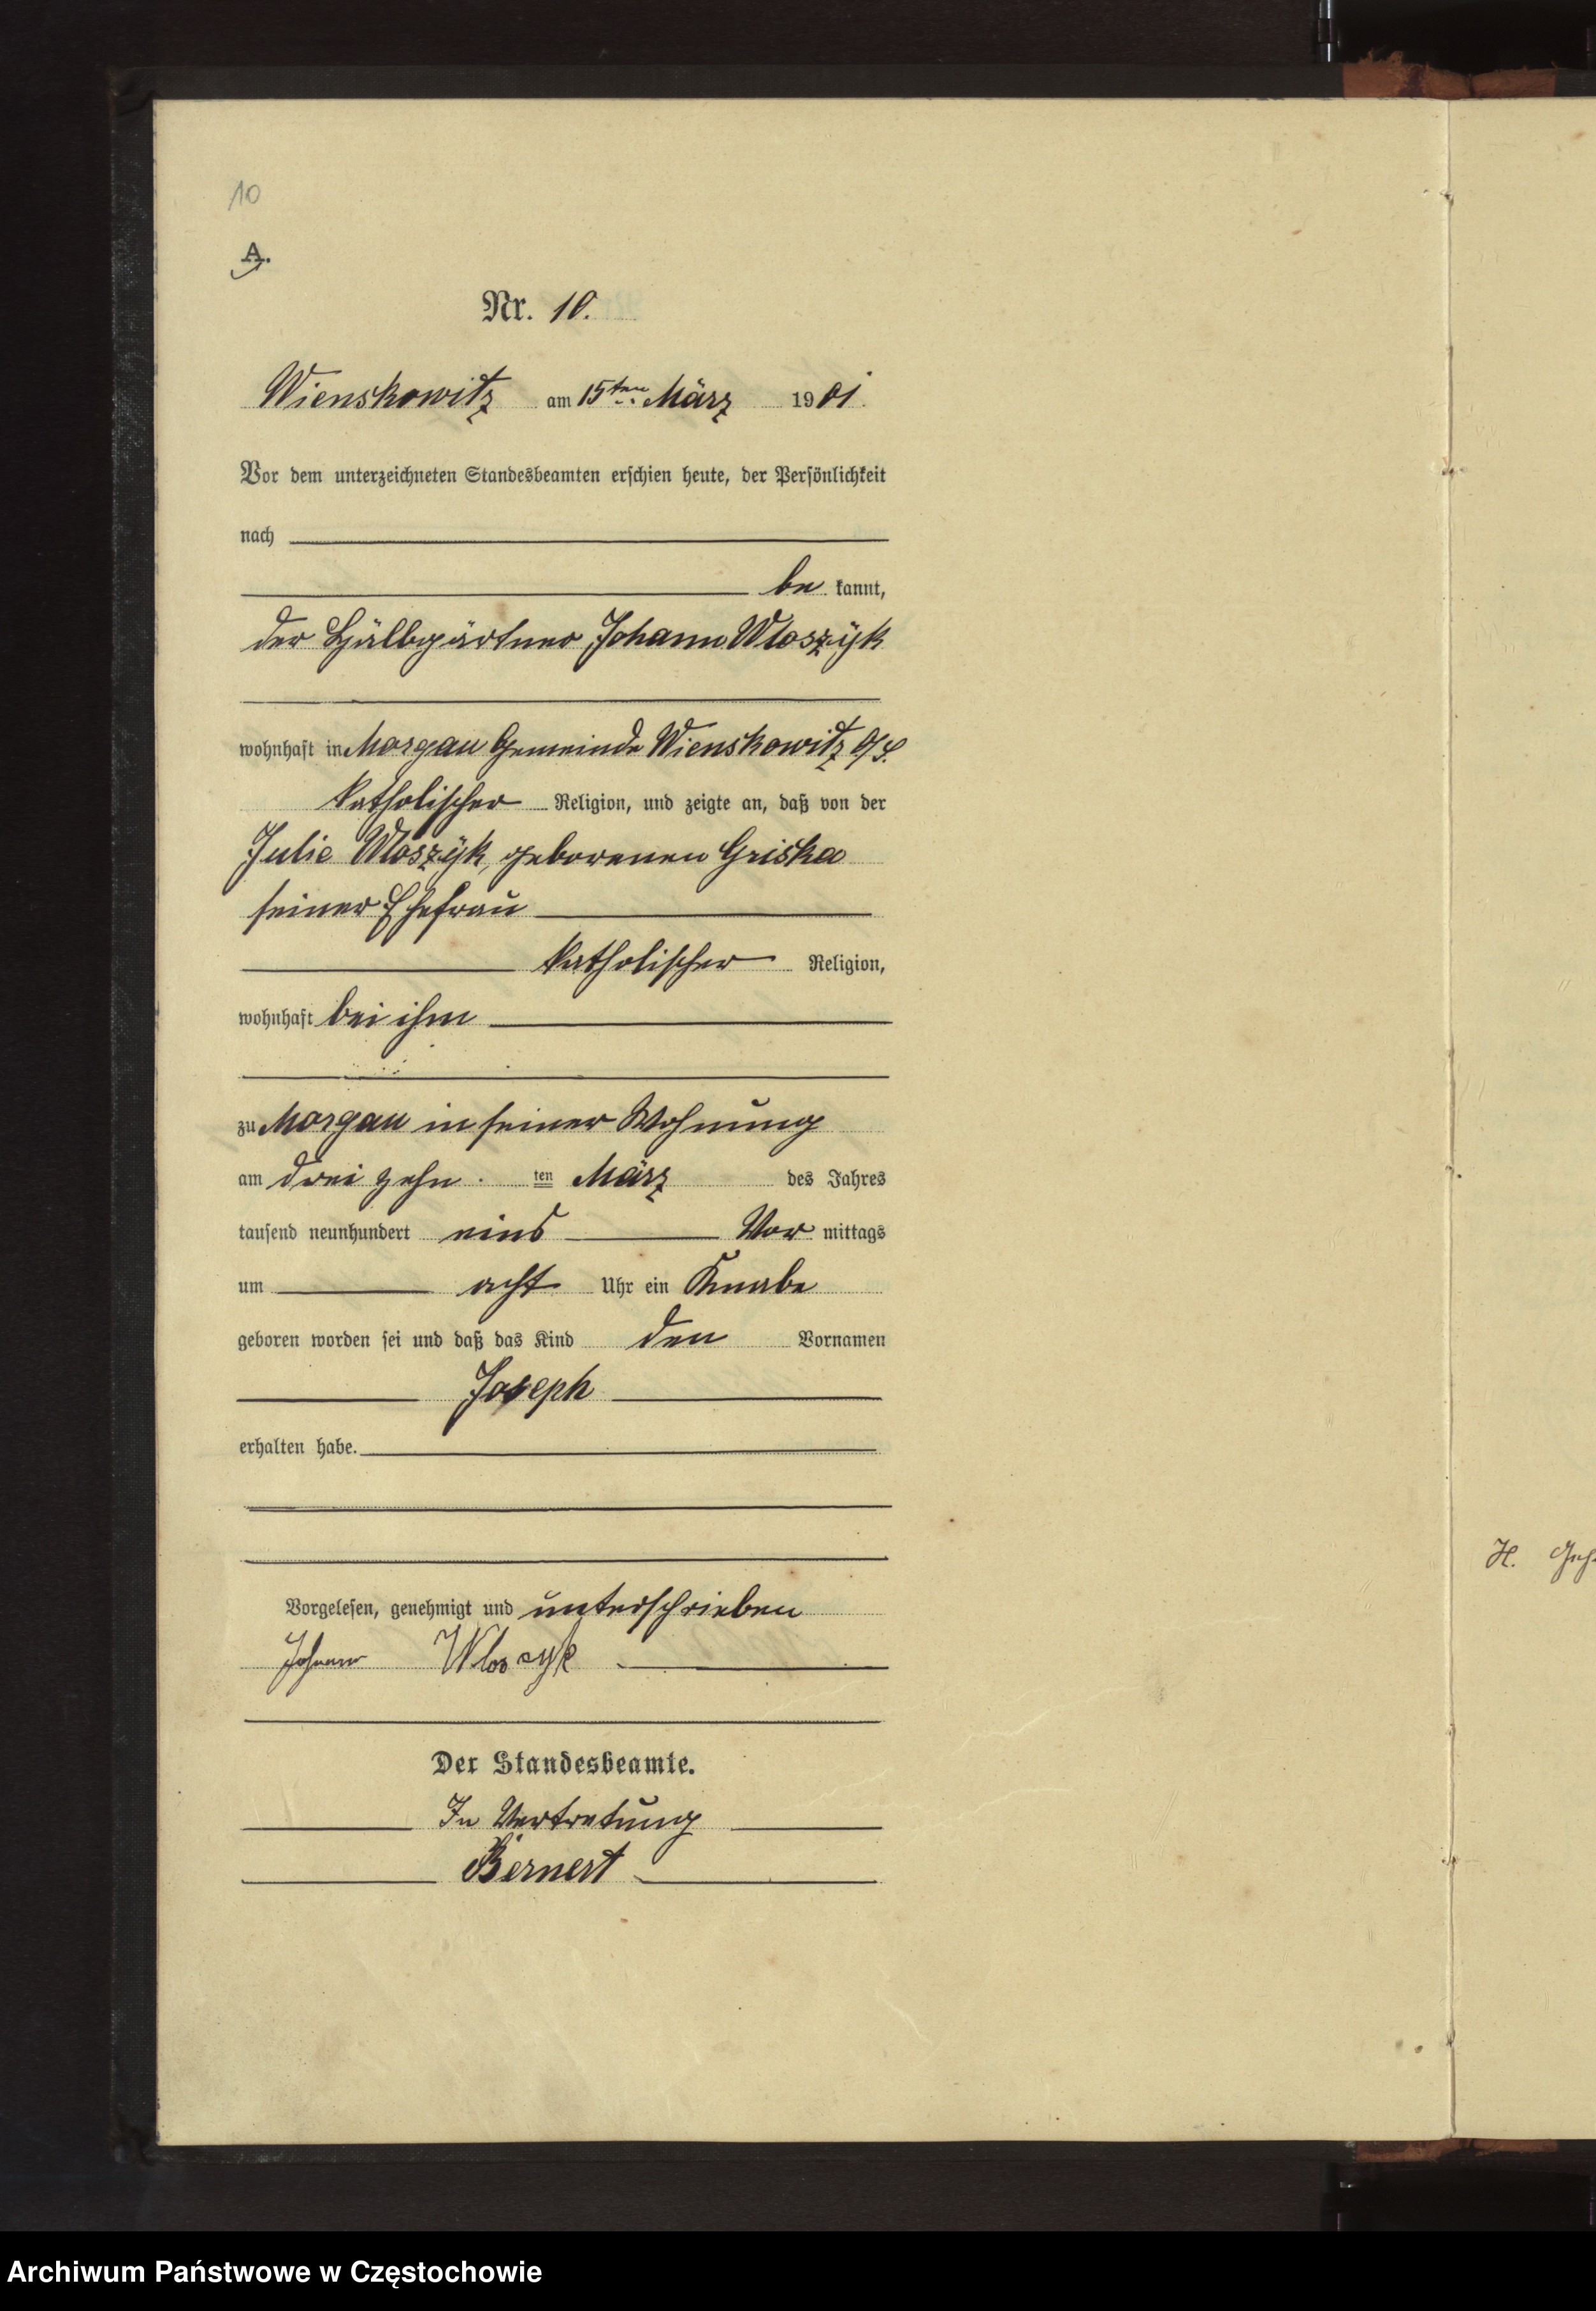 10
A.
Nr. 10.
Wienskowitz am 15ten März 1901.
Vor dem unterzeichneten Standesbeamten erschien heute, der Persönlichkeit
nach
be kannt,
der Hälbgärtner Johann Wloszÿk
wohnhaft in Morgau Gemeinde Wienskowitz O/S.
katholischer Religion, und zeigte an, daß von der
Julie Wloszÿk, geborenen Griska
seiner Ehefrau
katholischer Religion,
wohnhaft bei ihm
zu Morgau in seiner Wohnung
am drei zehn ten März des Jahres
tausend neunhundert eins Vor mittags
um acht Uhr ein Knabe
geboren worden sei und daß das Kind den Vornamen
Joseph
erhalten habe.
Vorgelesen, genehmigt und unterschrieben
Johann Wloszyk
Der Standesbeamte.
In Vertretung
Bernert
H.
Archiwum Państwowe w Częstochowie